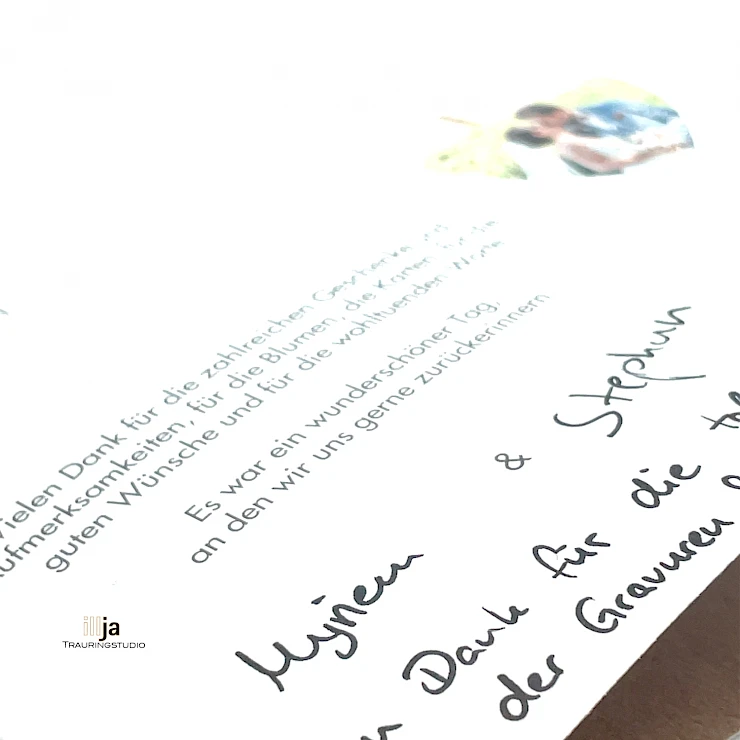 Vielen Dank für die zahlreichen Geschenke und
Aufmerksamkeiten, für die Blumen, die Karten für die
guten Wünsche und für die wohltuenden Worte
Es war ein wunderschöner Tag,
an den wir uns gerne zurückerinnern
& Stephan
Dank für die
der Gravuren
illja
TRAURINGSTUDIO